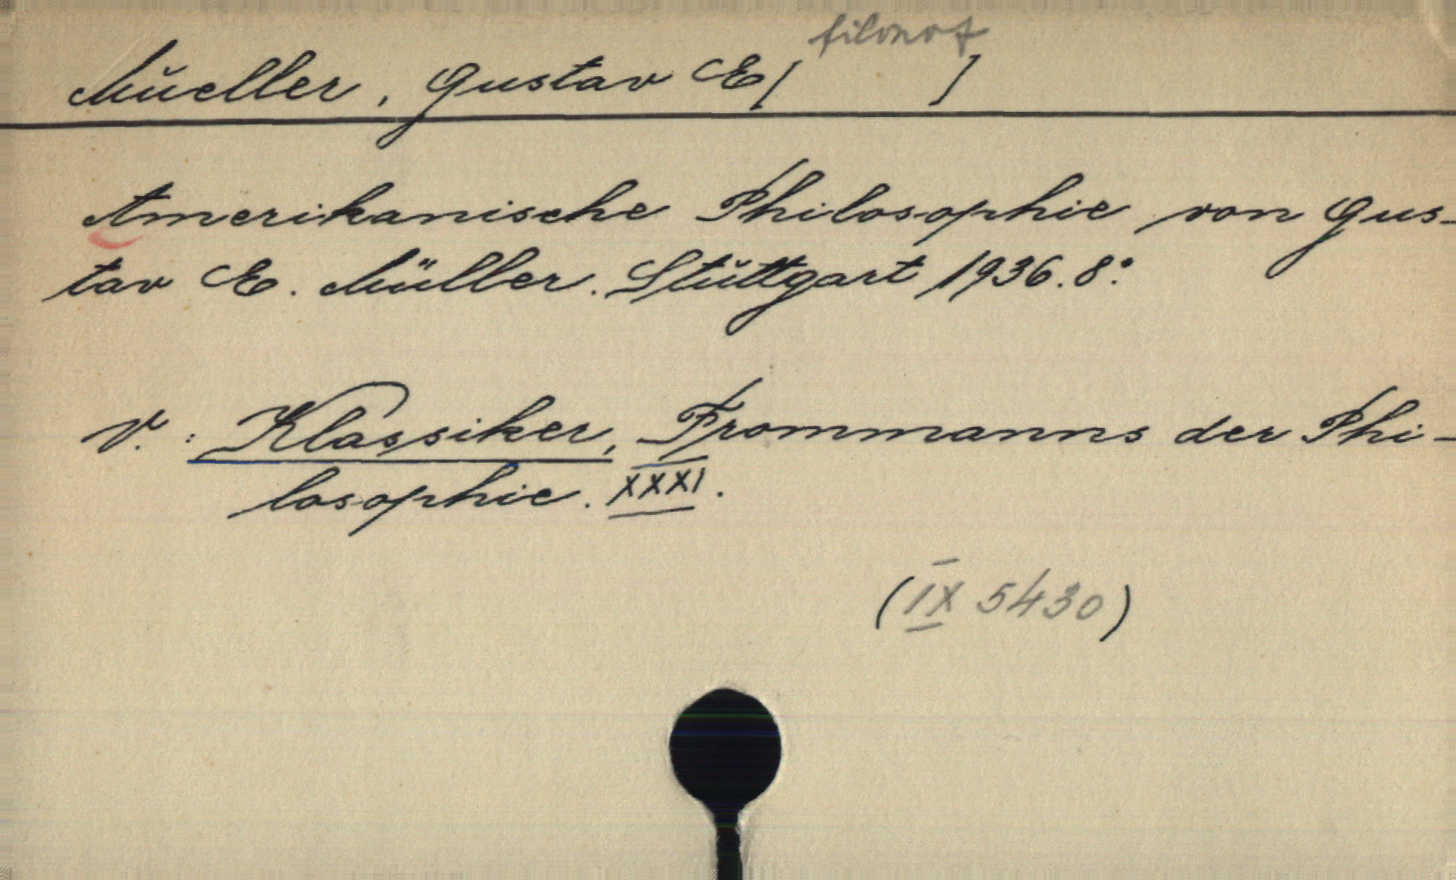 filozof
Mueller, Gustav E[ ]
Amerikanische Philosophie von Gus-
tav E. Müller. Stuttgart 1936. 8°.
V.: Klassiker, Frommanns der Phi-
losophie. XXXI.
(IX 5430)